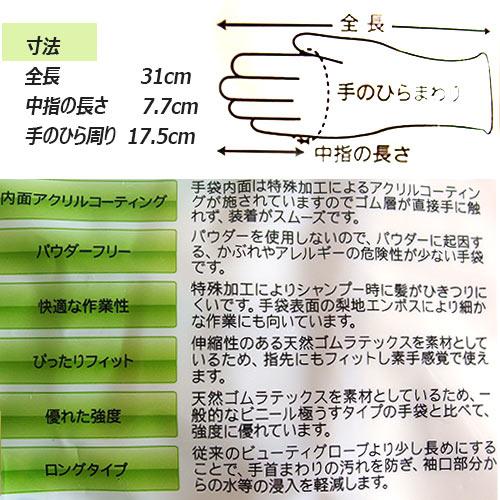 寸法
全長 31cm
中指の長さ 7.7cm
手のひら周り 17.5cm
全長
手のひらまわり
中指の長さ
内面アクリルコーティング
手袋内面は特殊加工によるアクリルコーティン
グが施されていますのでゴム層が直接手に触
れず、装着がスムーズです。
パウダーフリー
パウダーを使用しないので、パウダーに起因す
る、かぶれやアレルギーの危険性が少ない手袋
です。
快適な作業性
特殊加工によりシャンプー時に髪がひきつりに
くいです。手袋表面の梨地エンボスにより細か
な作業にも向いています。
ぴったりフィット
伸縮性のある天然ゴムラテックスを素材として
いるため、指先にもフィットし素手感覚で使え
ます。
優れた強度
天然ゴムラテックスを素材としているため、一
般的なビニール極うすタイプの手袋と比べて、
強度に優れています。
ロングタイプ
従来のビューティグローブより少し長めにする
ことで、手首まわりの汚れを防ぎ、袖口部分か
らの水等の浸入を軽減します。